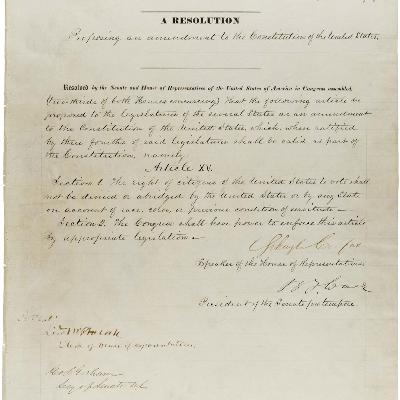 A RESOLUTION
Proposing an amendment to the Constitution of the United States.
Resolved by the Senate and House of Representatives of the United States of America in Congress assembled,
(two-thirds of both Houses concurring) that the following article be
proposed to the legislatures of the several States as an amendment
to the Constitution of the United States, which, when ratified
by three fourths of said legislatures shall be valid as part of
the Constitution, namely
Article XV.
Section 1. The right of citizens of the United States to vote shall
not be denied or abridged by the United States or by any State
on account of race, color, or previous condition of servitude—
Section 2. The Congress shall have power to enforce this article
by appropriate legislation—
Schuyler Colfax
Speaker of the House of Representatives.
President of the Senate pro tempore.
Attest:
Clerk of House of Representatives.
Secy of Senate U.S.